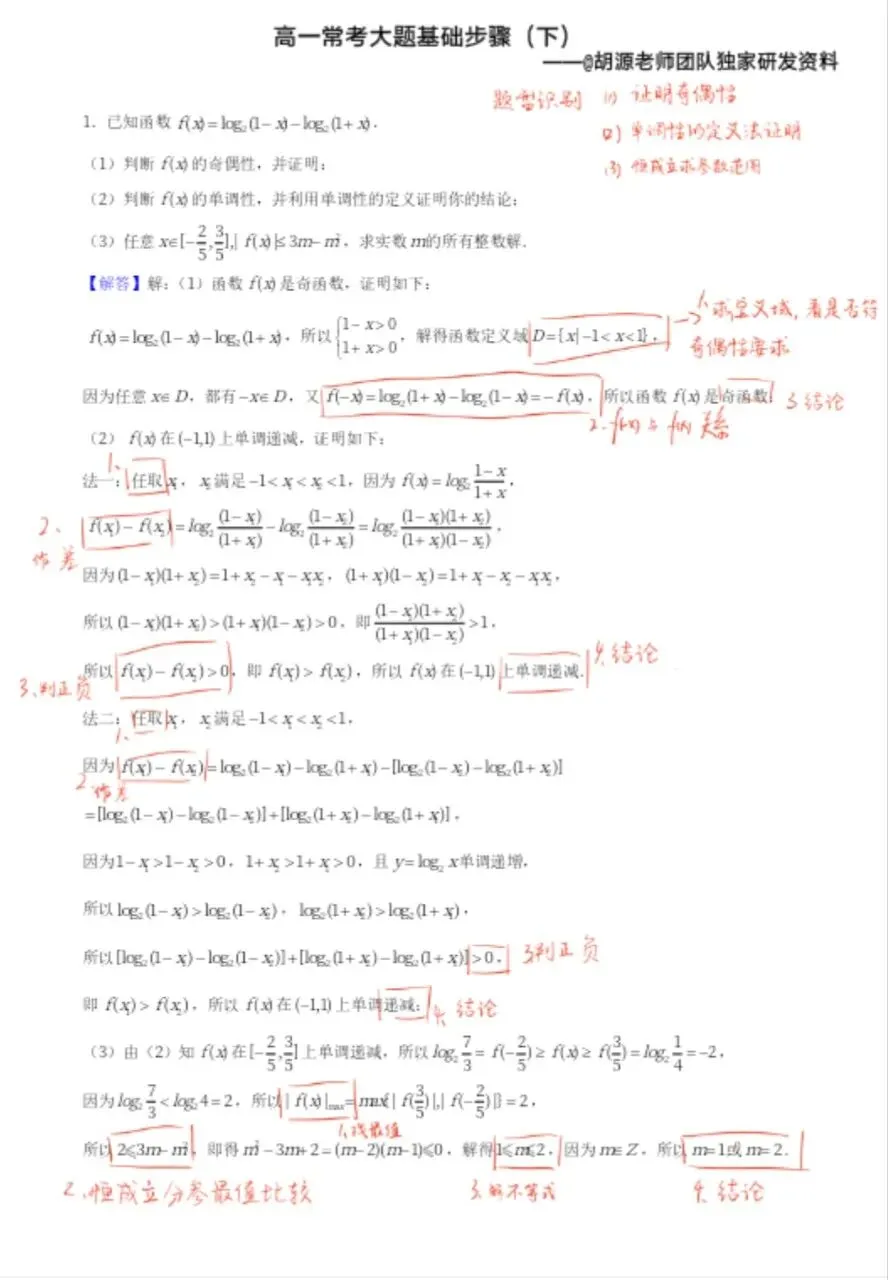 高一常考大题基础步骤（下）
——@胡源老师团队独家研发资料
题型识别 (1) 证明奇偶性
(2) 单调性的定义法证明
(3) 恒成立求参数范围
1. 已知函数 f(x)=log₂(1−x)−log₂(1+x).
（1）判断 f(x) 的奇偶性，并证明;
（2）判断 f(x) 的单调性，并利用单调性的定义证明你的结论;
（3）任意 x∈[−2/5,3/5],|f(x)|≤3m−m²，求实数 m 的所有整数解.
【解答】解:（1）函数 f(x) 是奇函数，证明如下:
f(x)=log₂(1−x)−log₂(1+x)，所以 {1−x>0, 1+x>0，解得函数定义域 D={x|−1<x<1}，
→ 1、求定义域，看是否符
奇偶性要求
因为任意 x∈D，都有−x∈D，又 f(−x)=log₂(1+x)−log₂(1−x)=−f(x)，所以函数 f(x) 是奇函数; 3 结论
2. f(x) 与 f(-x) 关系
（2） f(x) 在 (−1,1) 上单调递减，证明如下:
1、
法一: 任取 x₁， x₂ 满足 −1<x₁<x₂<1，因为 f(x)=log₂ (1−x)/(1+x)，
2、作差
f(x₁)−f(x₂)=log₂ (1−x₁)/(1+x₁) −log₂ (1−x₂)/(1+x₂) =log₂ (1−x₁)(1+x₂)/(1+x₁)(1−x₂)，
因为 (1−x₁)(1+x₂)=1+x₂−x₁−x₁x₂，(1+x₁)(1−x₂)=1+x₁−x₂−x₁x₂，
所以 (1−x₁)(1+x₂)>(1+x₁)(1−x₂)>0，即 (1−x₁)(1+x₂)/(1+x₁)(1−x₂) >1，
所以 f(x₁)−f(x₂)>0，即 f(x₁)>f(x₂)，所以 f(x) 在 (−1,1) 上单调递减. 4、结论
3、判正负
法二: 任取 x₁， x₂ 满足 −1<x₁<x₂<1，
1、
因为 f(x₁)−f(x₂)=log₂(1−x₁)−log₂(1+x₁)−[log₂(1−x₂)−log₂(1+x₂)]
2 作差
=[log₂(1−x₁)−log₂(1−x₂)]+[log₂(1+x₂)−log₂(1+x₁)]，
因为1−x₁>1−x₂>0，1+x₂>1+x₁>0，且 y=log₂ x单调递增，
所以 log₂(1−x₁)>log₂(1−x₂)，log₂(1+x₂)>log₂(1+x₁)，
所以 [log₂(1−x₁)−log₂(1−x₂)]+[log₂(1+x₂)−log₂(1+x₁)]>0， 3判正负
即 f(x₁)>f(x₂)，所以 f(x) 在 (−1,1) 上单调递减; 4、结论
（3）由（2）知 f(x) 在 [−2/5,3/5] 上单调递减，所以 log₂ 7/3 = f(−2/5)≥f(x)≥f(3/5)=log₂ 1/4 =−2，
因为 log₂ 7/3 <log₂4=2，所以 |f(x)|max=max{|f(3/5)|,|f(−2/5)|}=2，
1、找最值
所以 2⩽3m−m²，即得 m²−3m+2=(m−2)(m−1)⩽0，解得 1⩽m⩽2，因为 m∈Z，所以 m=1或 m=2.
2、恒成立分参最值比较 3、解不等式 4、结论